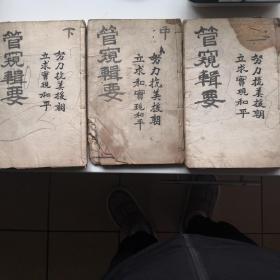 下
管窺輯要
努力抗美援朝
立求實現和平
中
管窺輯要
努力抗美援朝
立求和實現和平
管窺輯要
努力抗美援朝
立求實現和平